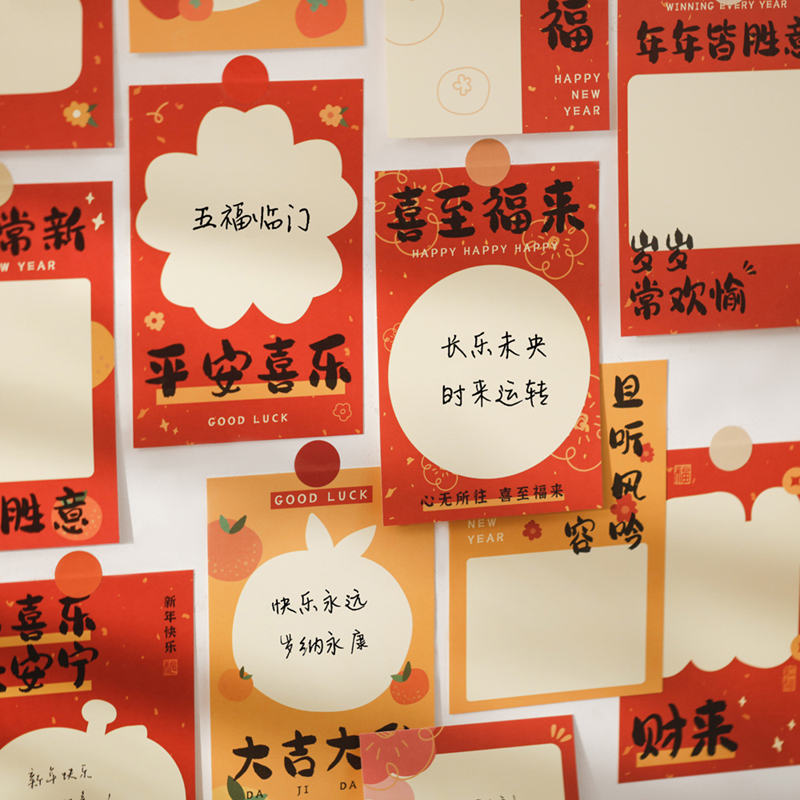 福
HAPPY
NEW
YEAR
WINNING EVERY YEAR
年年皆胜意
岁岁
常欢愉
五福临门
平安喜乐
GOOD LUCK
喜至福来
HAPPY HAPPY HAPPY
长乐未央
时来运转
心无所往 喜至福来
常新
W YEAR
胜意
GOOD LUCK
快乐永远
岁纳永康
大吉大
DA JI DA
且听风吟
容
NEW
YEAR
福
财来
喜乐
安宁
新年快乐
新年快乐